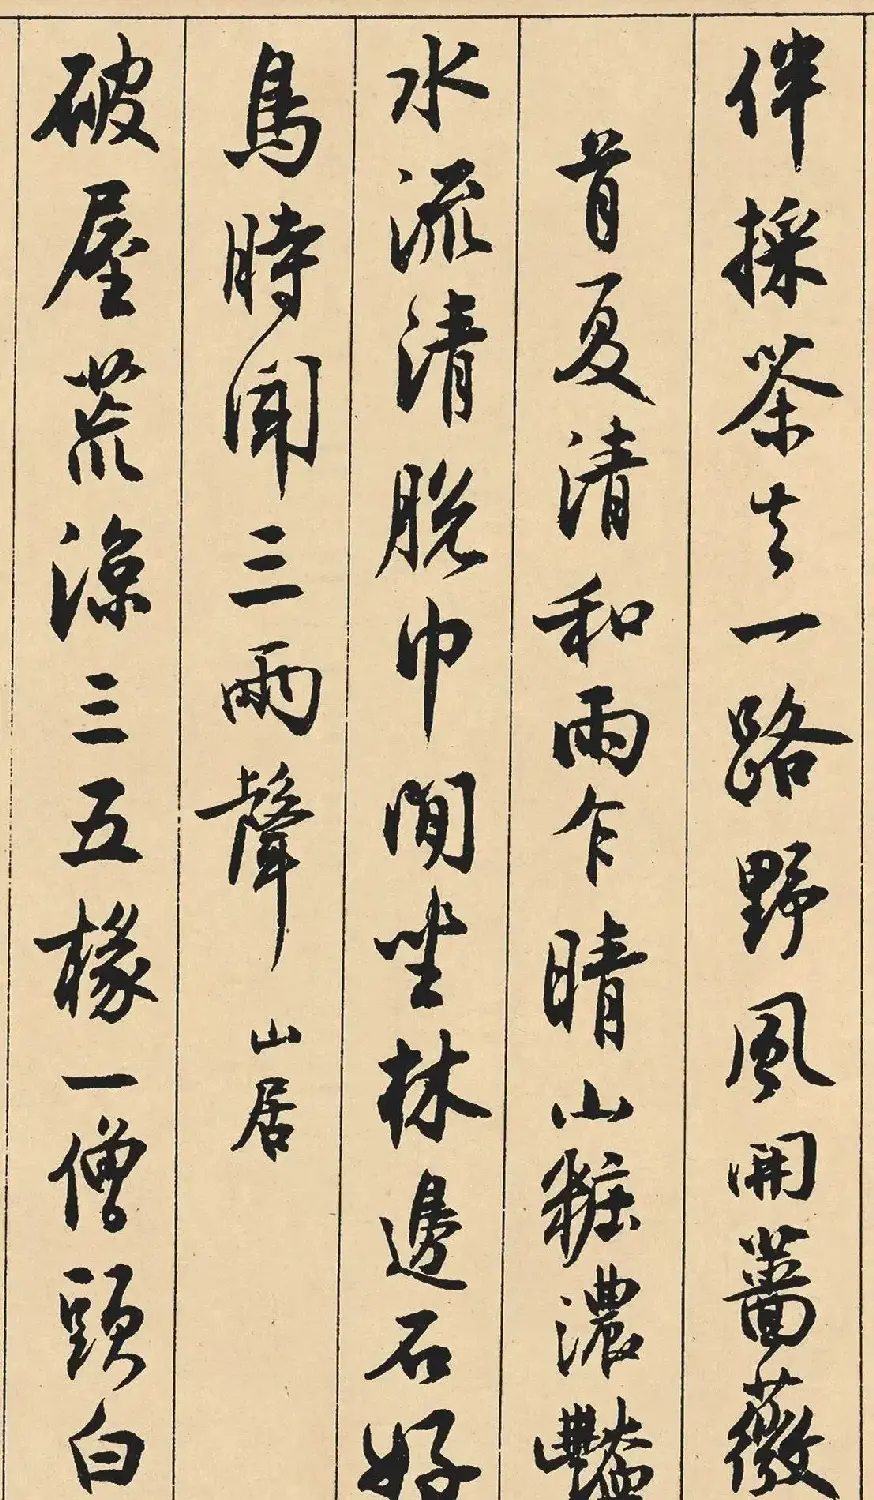 伴採茶去一路野風開薔薇
首夏清和雨乍晴山粧濃艷
水流清脫巾閒坐林邊石好
鳥時聞三兩聲 山居
破屋荒涼三五椽一僧頭白